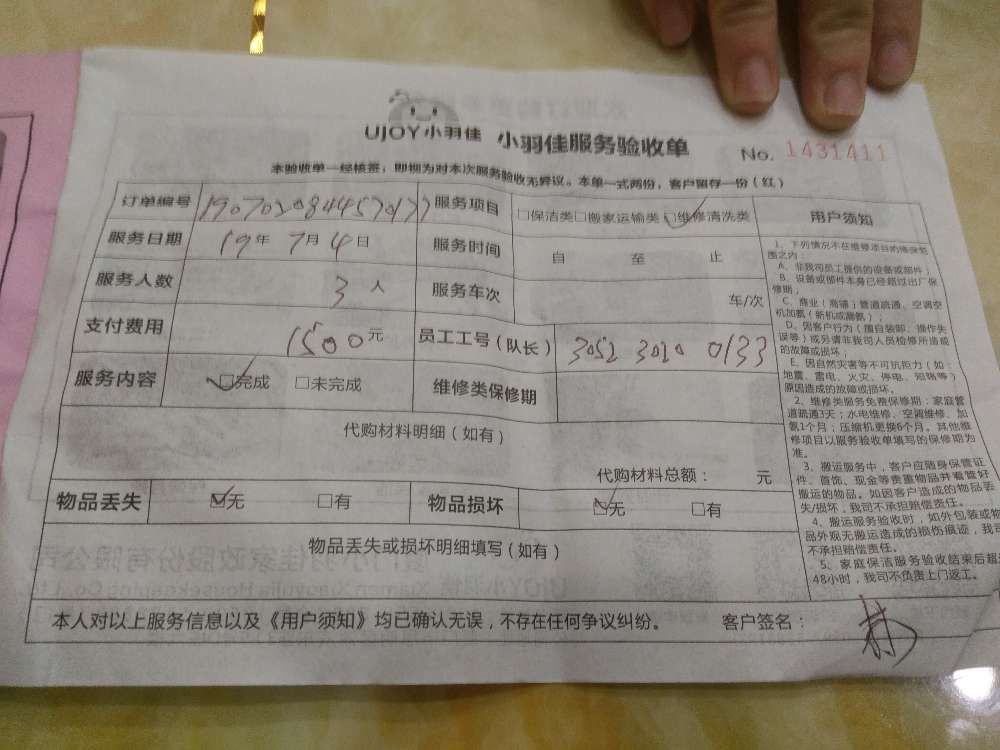 UJOY小羽佳 小羽佳服务验收单 No. 1431411
本验收单一经核签，即视为对本次服务验收无异议。本单一式两份，客户留存一份（红）
订单编号 1907020844570177 服务项目 □保洁类□搬家运输类□维修清洗类
服务日期 19年 7月 4日 服务时间 自 至 止
服务人数 3 人 服务车次 车/次
支付费用 1500元 员工工号（队长） 3052 3020 0133
服务内容 □完成 □未完成 维修类保修期
代购材料明细（如有）
代购材料总额： 元
物品丢失 □无 □有 物品损坏 □无 □有
物品丢失或损坏明细填写（如有）
用户须知
1、下列情况不在维修项目的维保范
围之内：
A、非我司员工提供的设备或部件；
B、设备或部件本身已经超过出厂保
修期；
C、商业（商铺）管道疏通、空调空
机加氨（新机或漏氨）；
D、因客户行为（擅自装卸、操作失
误等）或另请非我司人员检修所造成
的故障或损坏；
E、因自然灾害等不可抗拒力（如：
地震、雷电、火灾、停电、短路等）
原因造成的故障或损坏。
2、维修类服务免费保修期：家庭管
道疏通3天；水电维修、空调维修、加
氨1个月；压缩机更换6个月。其他维
修项目以服务验收单填写的保修期为
准。
3、搬运服务中，客户应随身保管证
件、首饰、现金等贵重物品并看管好
搬运的物品。如因客户造成的物品丢
失/损坏，我司不承担赔偿责任。
4、搬运服务验收时，如外包装或物
品外观无搬运造成的损伤痕迹，我司
不承担赔偿责任。
5、家庭保洁服务验收结束后超过
48小时，我司不负责上门返工。
本人对以上服务信息以及《用户须知》均已确认无误，不存在任何争议纠纷。 客户签名：